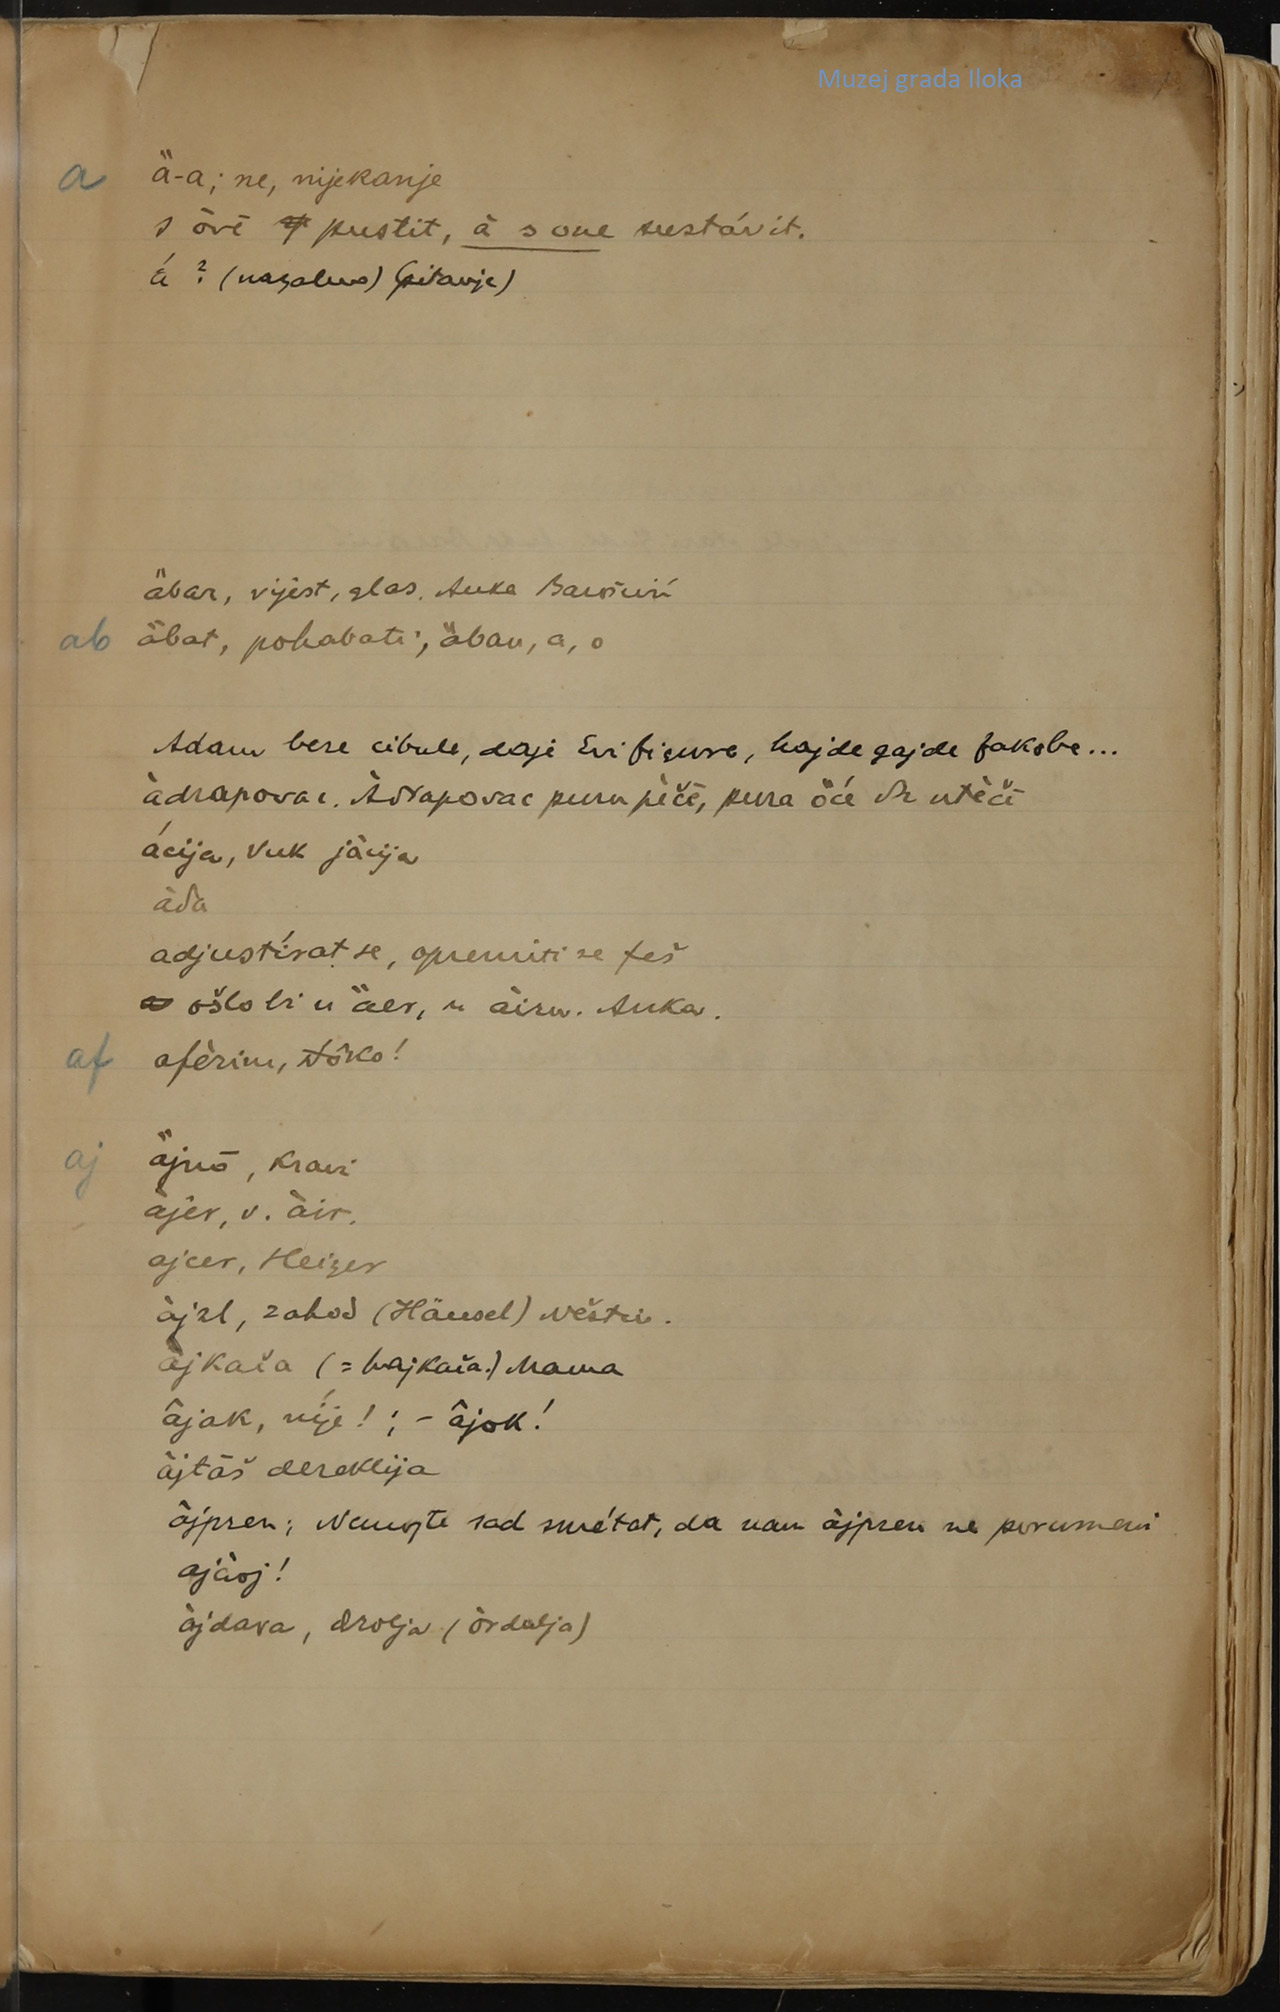 Muzej grada Iloka
a ȁ-a; ne, nijekanje
s ȍvē pustit, à s one sustávit.
á? (nazalno) (pitanje)
ȁbar, vijest, glas. Anka
ab ȁbat, pohabati; ȁban, a, o
Adam bere cibule, daje Evi figure, hajde gajde fakobe...
àdrapovac. Àdrapovac puru pèčē, pura ȍće da utèče
ácija, Vuk jàcija
àda
adjustírat se, opremiti se feš
ošlo bi u ȁer, u àiru. Anka.
af afèrim, Ðôko!
aj ȁjnō, Kravi
àjēr, v. àir.
ajcer, Heizer
àjzl, zahod (Häusel) Neštin.
àjkača (= hajkača.) Mama
âjak, níje!; - âjok!
àjtāš dereklija
àjpren; Nemojte sad smétat, da nam àjpren ne porumeni
ajàoj!
àjdara, drolja (òrdulja)